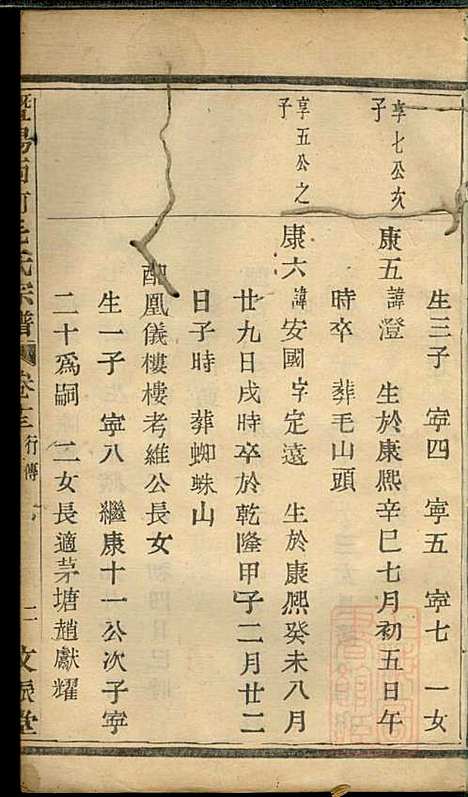 生三子 寕四 寕五 寕七 一女
享七公次子
康五 諱澄 生於康熙辛巳七月初五日午
時卒 葬毛山頭
享五公之子
康六 諱安國字定遠 生於康熙癸未八月
廿九日戌時卒於乾隆甲子二月廿二
日子時 葬蜘蛛山
配凰儀樓樓考維公長女
生一子 寕八 繼康十一公次子寕
二十爲嗣 二女長適茅塘趙獻耀
暨陽 宗譜 卷十三 行傳 二 文派堂